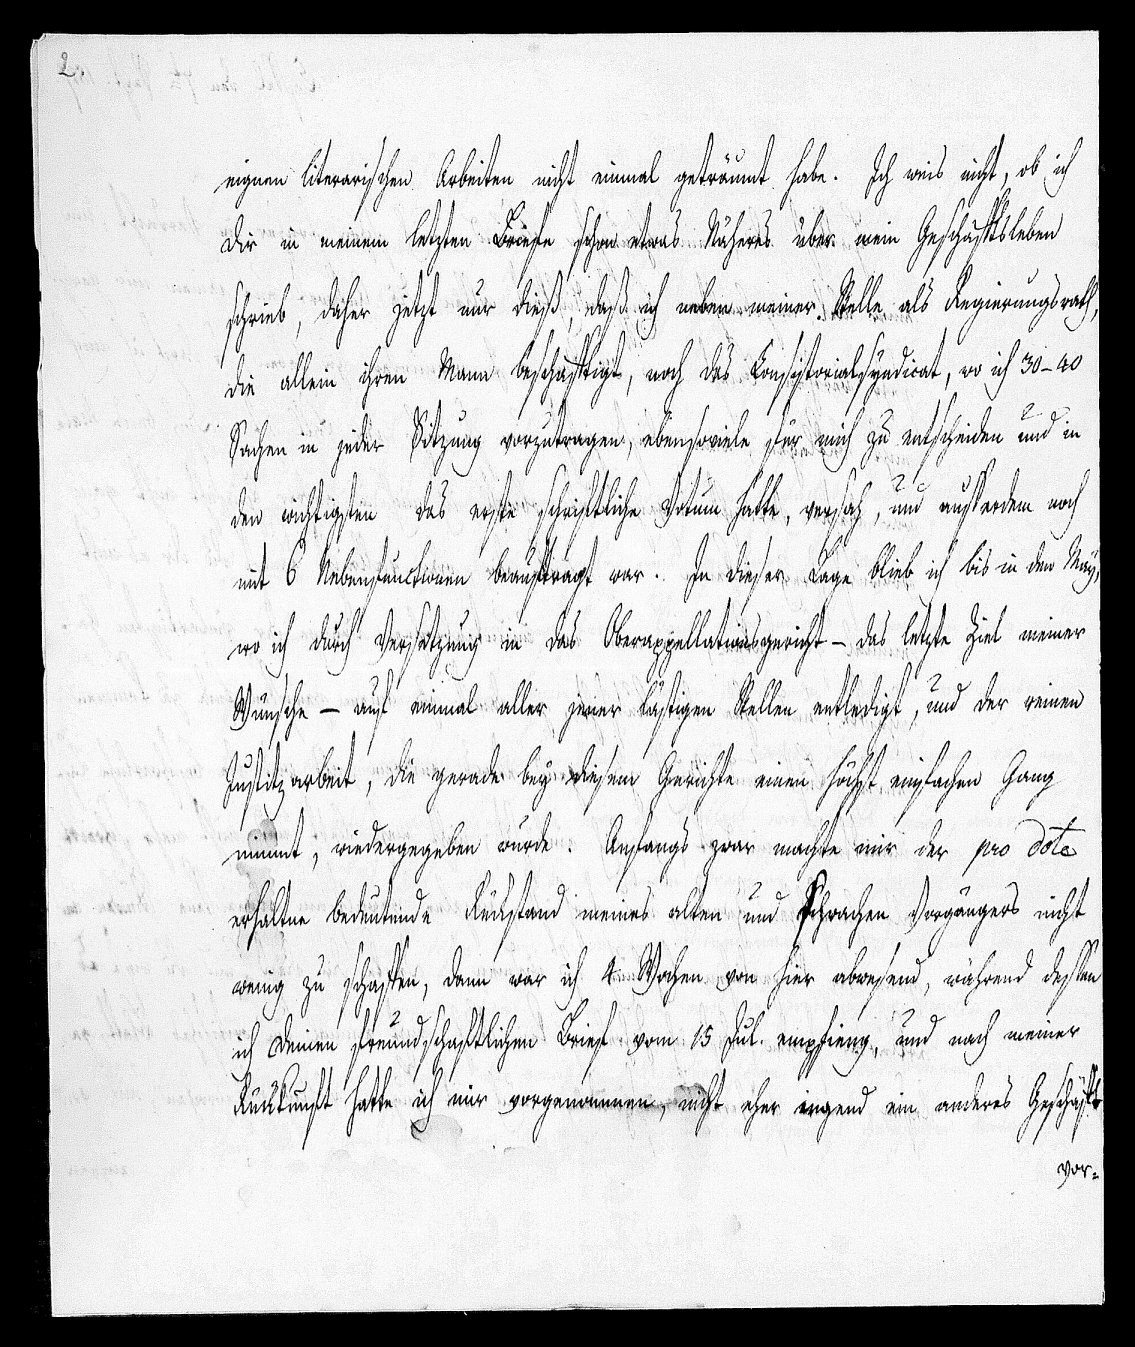 2.
eignen literarischen Arbeiten nicht einmal geträumt habe. Ich weis nicht, ob ich
Dir in meinem letzten Briefe schon etwas Näheres über mein Geschäfftsleben
schrieb, daher jetzt nur dieß, daß ich neben meiner Stelle als Regierungsrath,
die allein ihren Mann beschäfftigt, noch das Consistorialsyndicat, wo ich 30–40
Sachen in jeder Sitzung vorzutragen, ebensoviele für mich zu entscheiden und in
den wichtigsten das erste schriftliche Votum hatte, versah, und ausserdem noch
mit 6 Nebenfunctionen beauftragt war. In dieser Lage blieb ich bis in den May,
wo ich durch Versetzung in das Oberappellationsgericht – das letzte Ziel meiner
Wünsche – auf einmal aller jener lästigen Stellen entledigt, und der reinen
Justitzarbeit, die gerade bey diesem Gerichte einen höchst einfachen Gang
nimmt, wiedergegeben wurde. Anfangs zwar machte mir der pro dote
erhaltne bedeutende Rückstand meines alten und schwachen Vorgängers nicht
wenig zu schaffen, dann war ich 4 Wochen von hier abwesend, während dessen
ich Deinen freundschaftlichen Brief vom 15 Jul. empfieng, und nach meiner
Rückkunft hatte ich mir vorgenommen, nicht eher irgend ein anderes Geschäfft
vor=